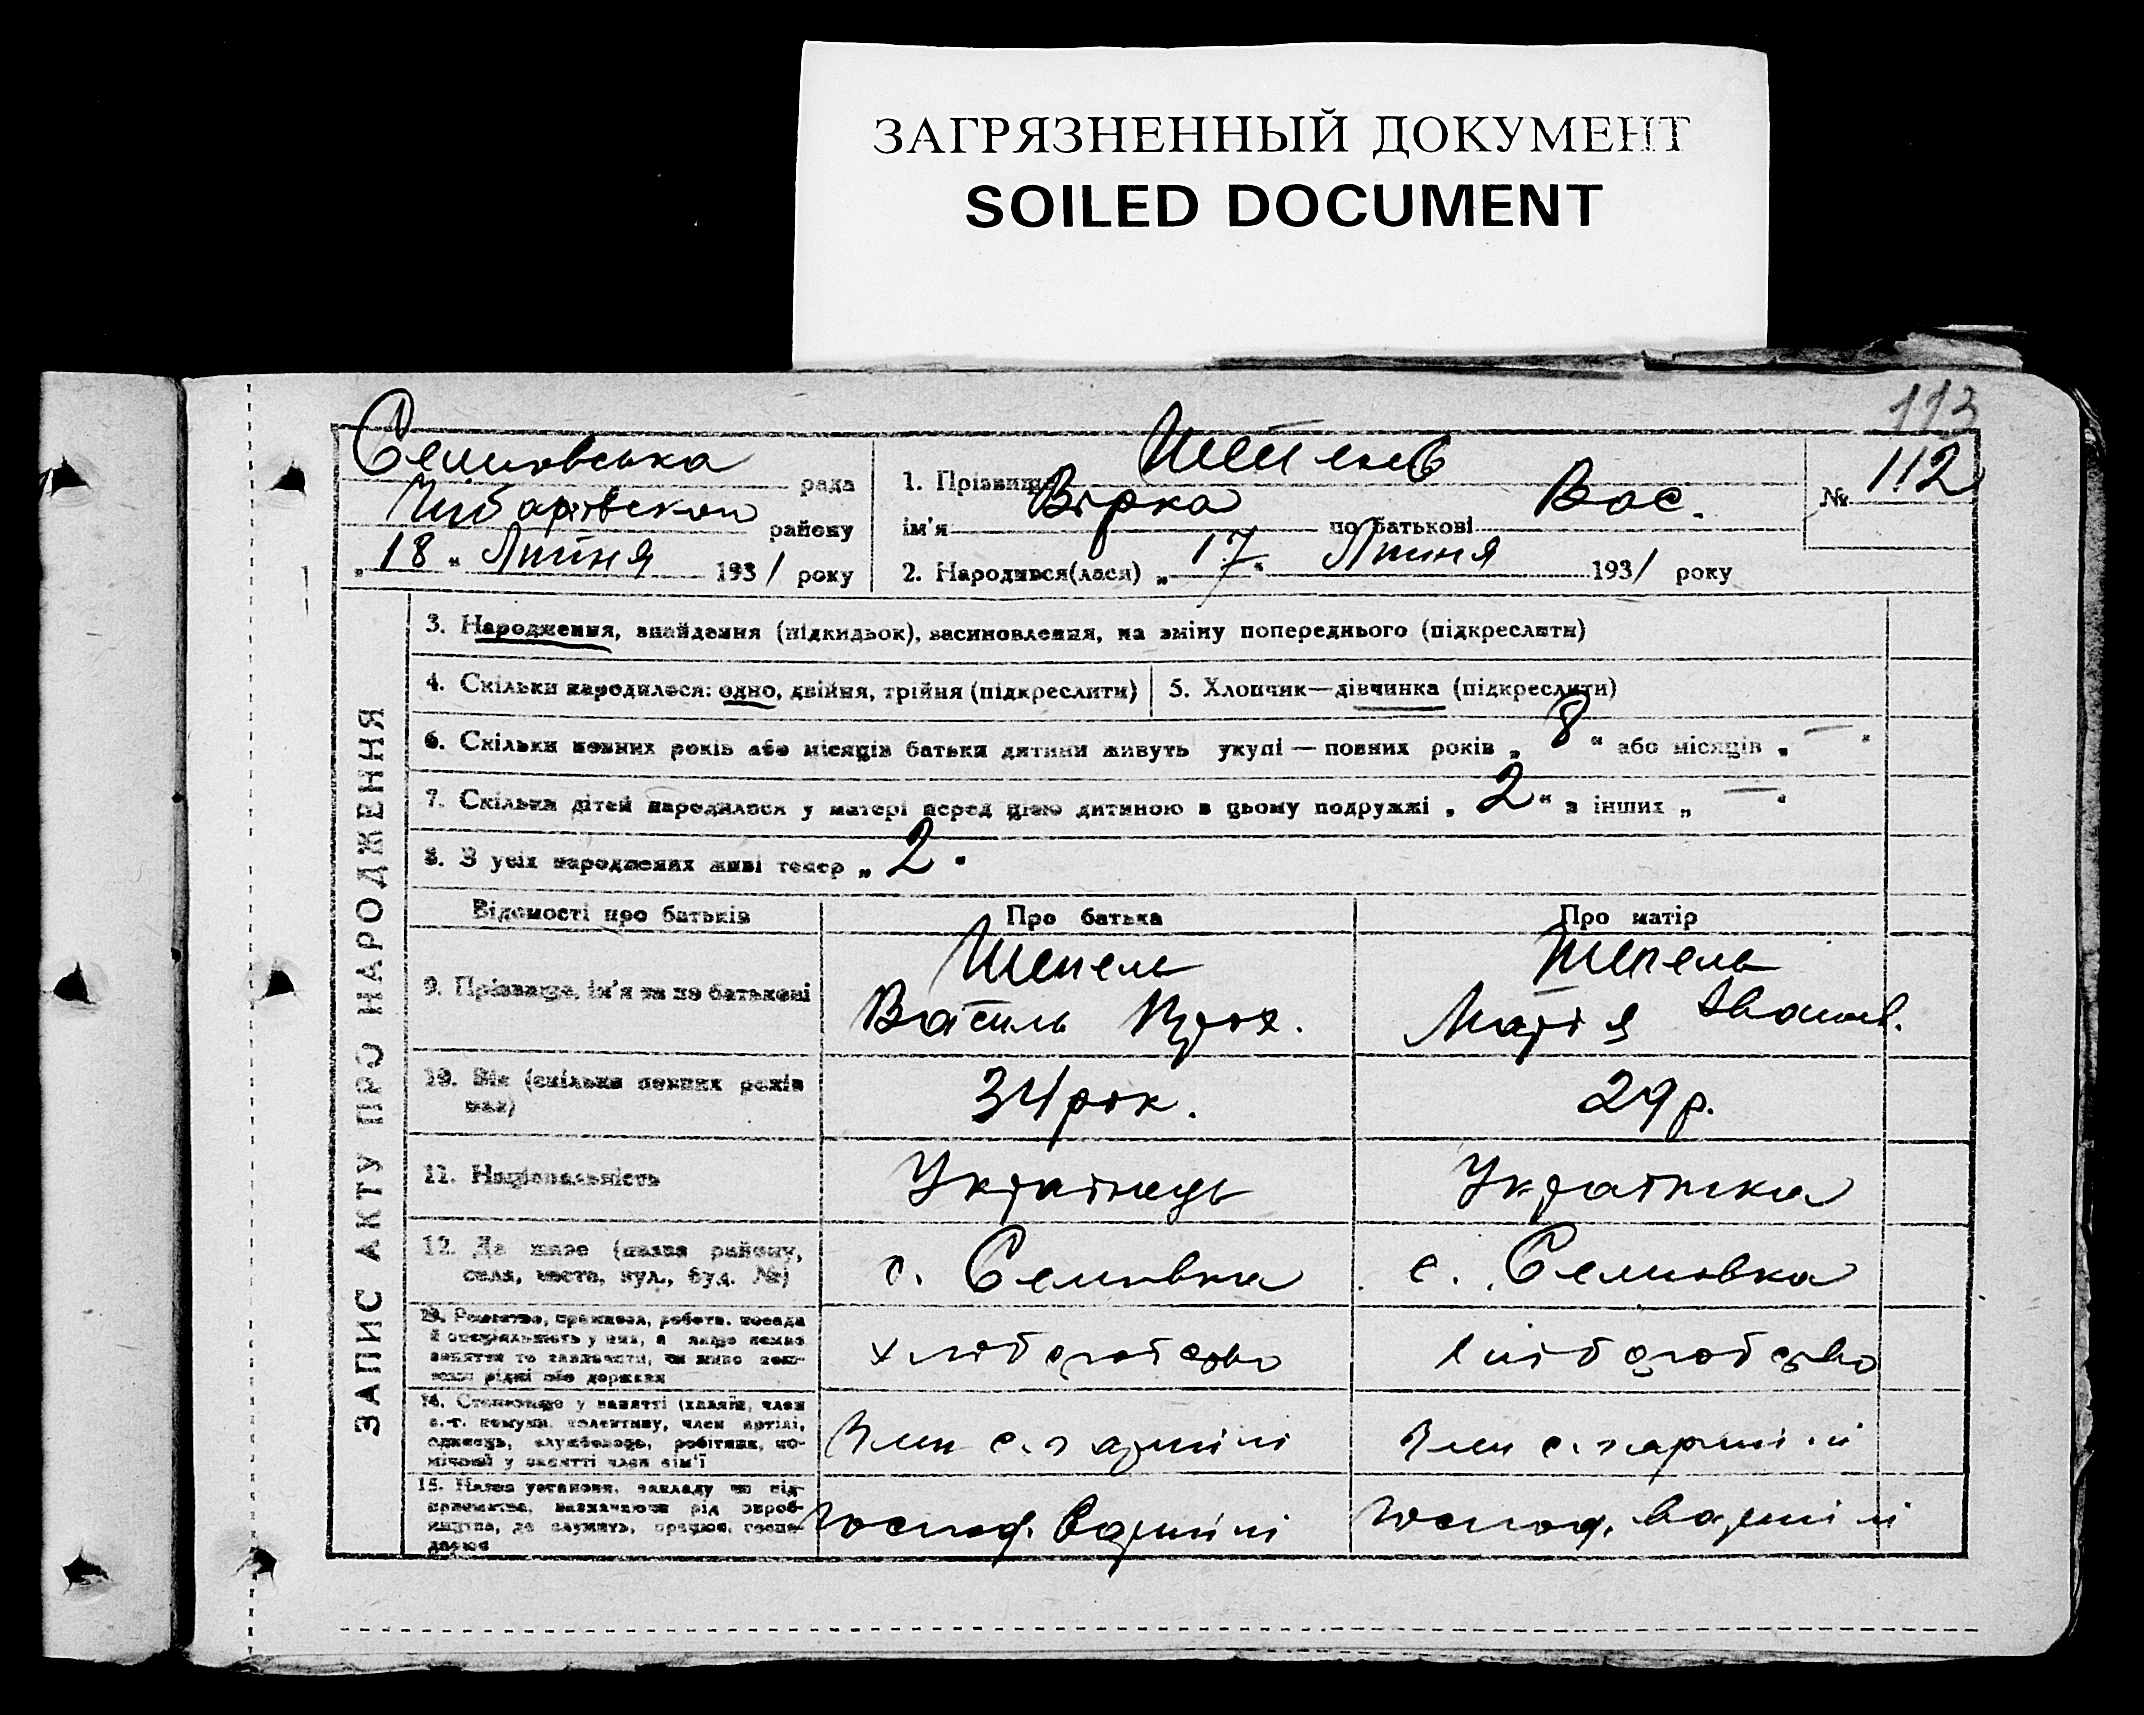 ЗАГРЯЗНЕННЫЙ ДОКУМЕНТ
SOILED DOCUMENT
113
Семиовська рада
району
„18“ Липня 1931 року
1. Прізвище Шепель
ім'я Вірка по батькові Вас.
№ 112
2. Народився(лася) „17“ Липня 1931 року
ЗАПИС АКТУ ПРО НАРОДЖЕННЯ
3. Народження, знайдення (підкидьок), засиновлення, на зміну попереднього (підкреслити)
4. Скільки народилося: одно, двійня, трійня (підкреслити)
5. Хлопчик—дівчинка (підкреслити)
6. Скільки повних років або місяців батьки дитини живуть укупі — повних років „8“ або місяців „—“
7. Скільки дітей народилося у матері перед цією дитиною в цьому подружжі „2“ з інших „—“
8. З усіх народжених живі тепер „2“
Відомості про батьків
Про батька
Про матір
9. Прізвище, ім'я та по батькові
Шепель
Василь Прох.
Шепель
Марія Іванов.
10. Вік (скільки повних років має)
34 рок.
29 р.
11. Національність
Українець
Українка
12. Де живе (назва району, села, міста, вул., буд. №)
с. Семиовка
с. Семиовка
13. Ремество, промисел, робота, посада й спеціяльність у них, а якщо немає заняття то зазначити, чи живе коштом рідні або держави
хлібробство
хлібробство
14. Становище у занятті (хазяїн, член с.-г. комуни, колективу, член артілі, одинець, службовець, робітник, помічний у занятті член сім'ї
Член с.г артілі
Член с.г артілі
15. Назва установи, закладу чи підприємства, зазначаючи рід виробництва, де служить, працює, господарює
господ. в артілі
господ. в артілі